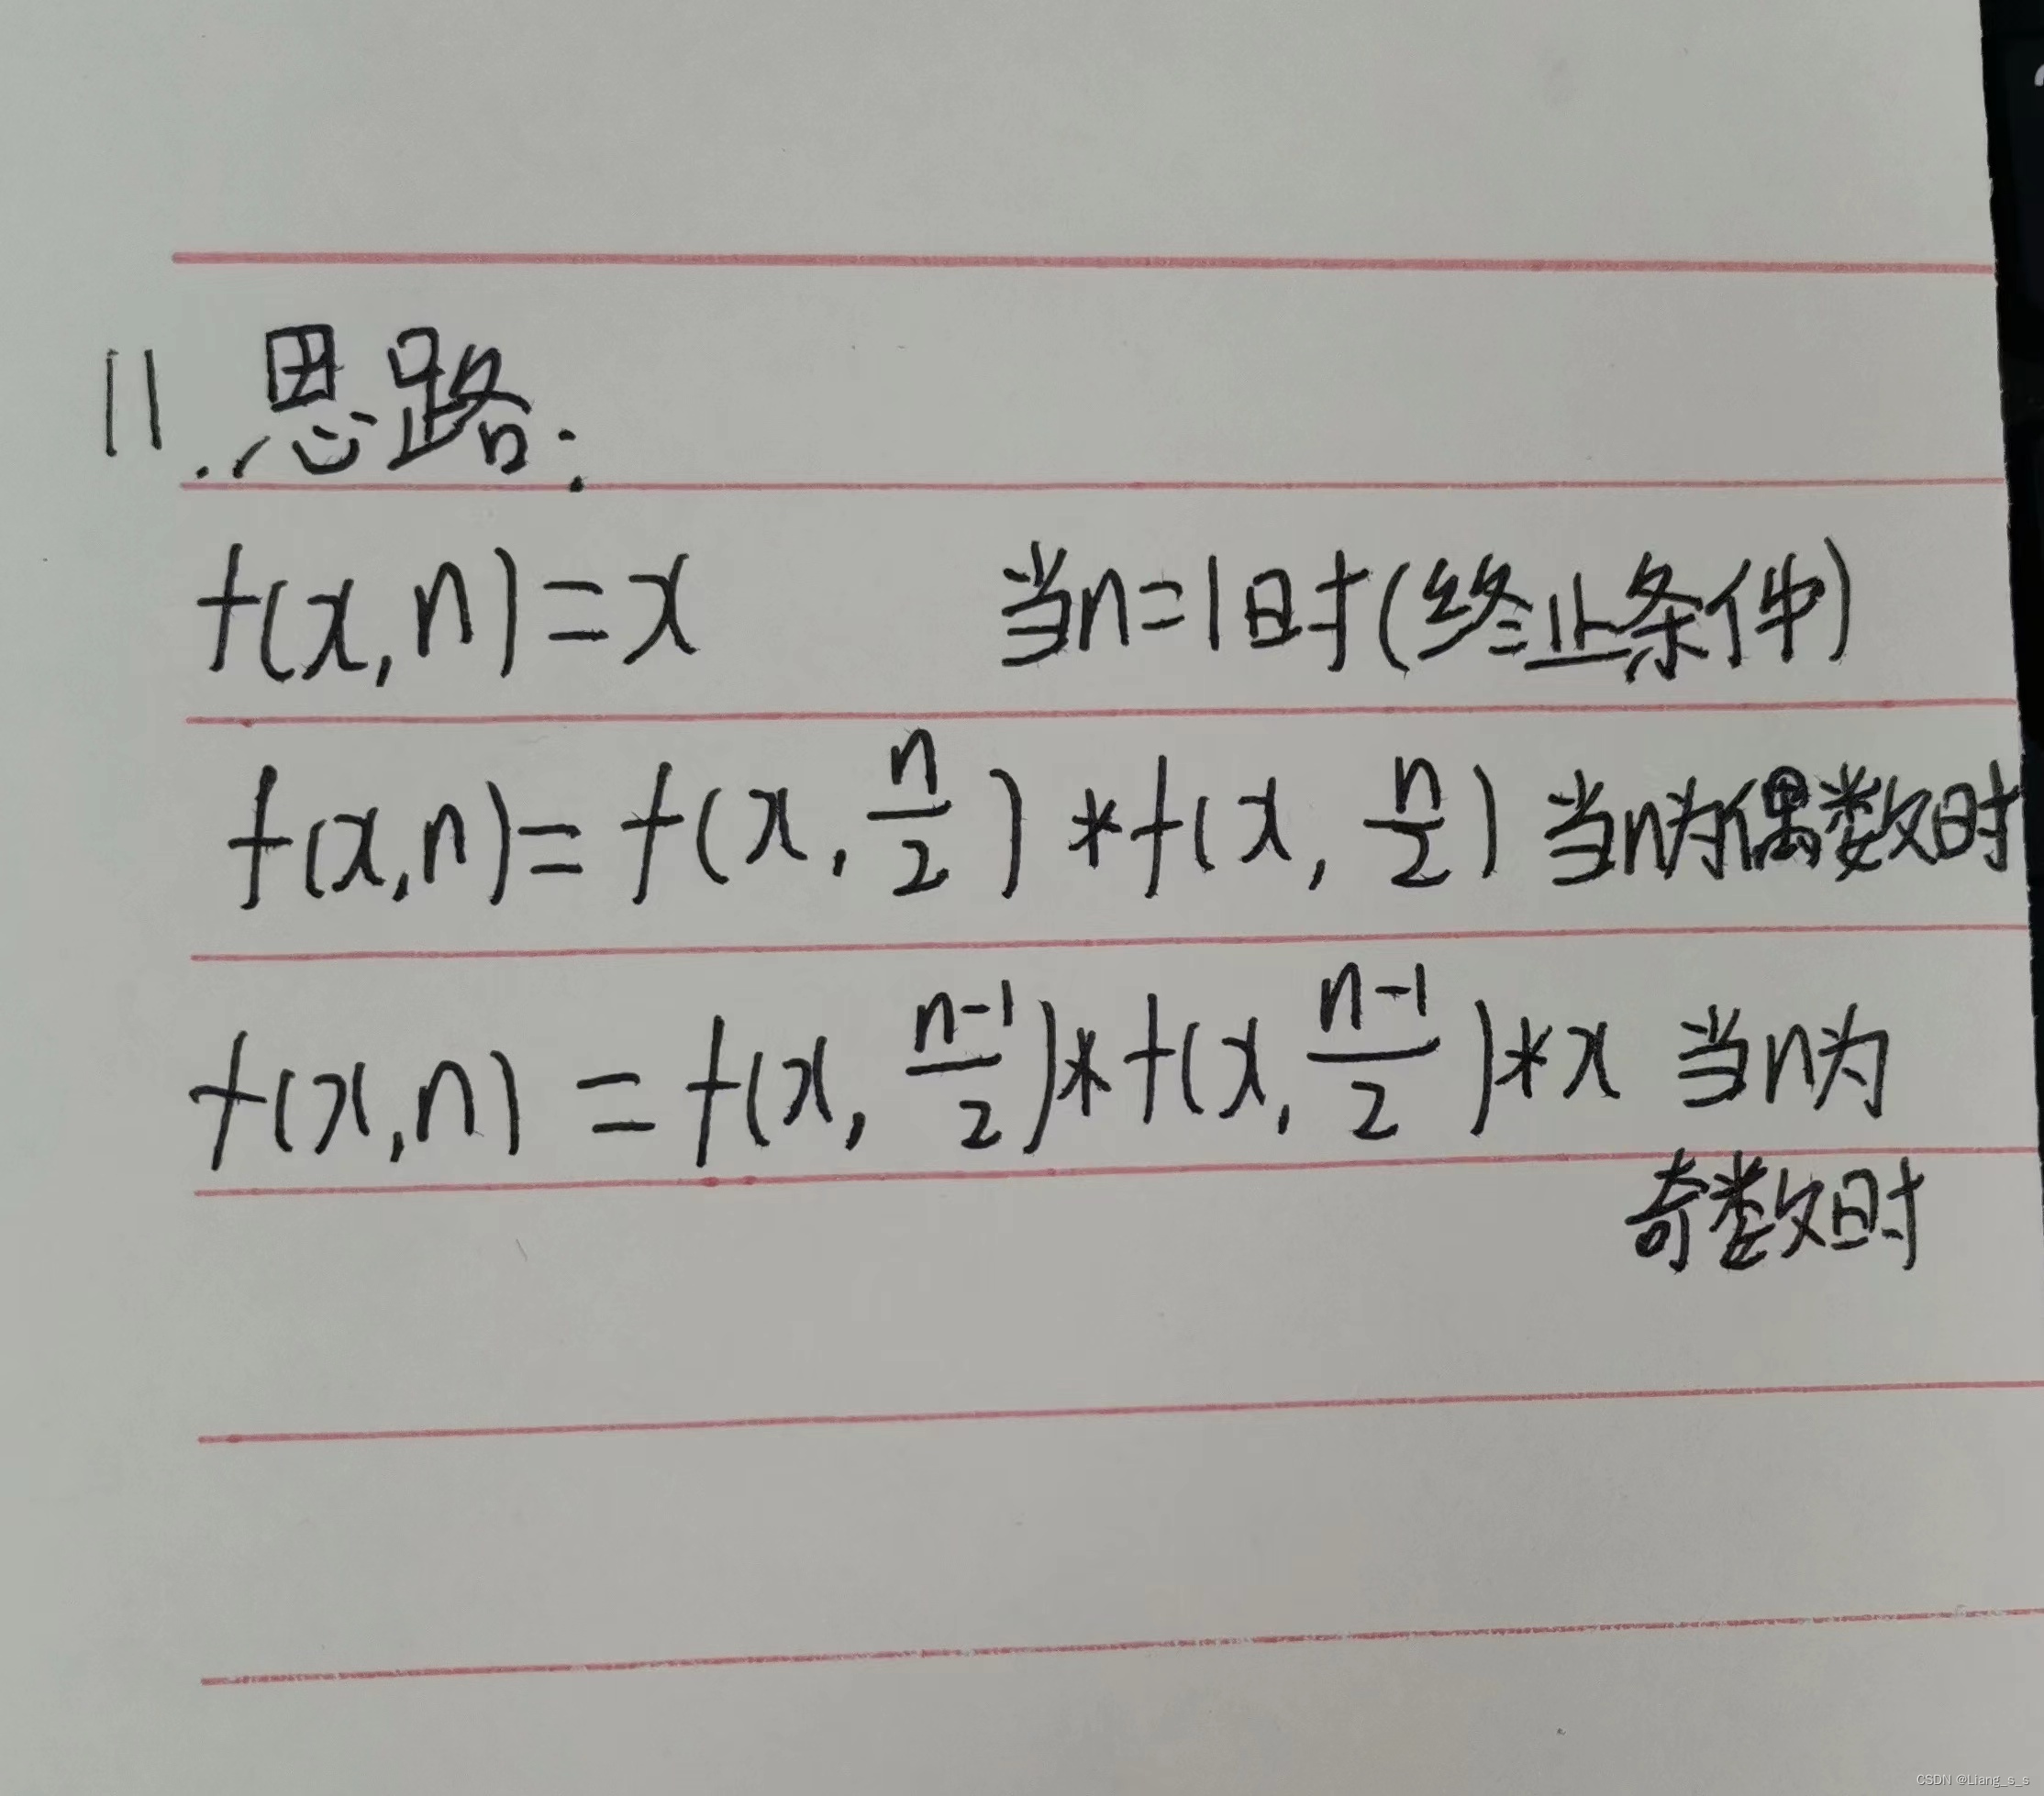 11.思路:
f(x,n)=x 当n=1时(终止条件)
f(x,n)=f(x,n/2)*f(x,n/2) 当n为偶数时
f(x,n)=f(x,(n-1)/2)*f(x,(n-1)/2)*x 当n为
奇数时
CSDN @Liang_s_s